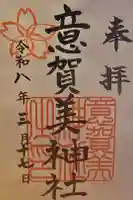 奉拝
意賀美神社
令和八年三月十七日
意賀美